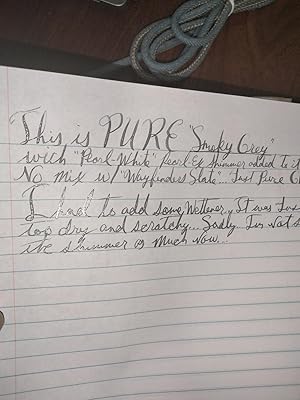 This is PURE "Smoky Grey"
with "Pearl-White" Pearl Ex shimmer added to it
No mix w/ "Wayfinders Slate"... Just Pure
I had to add some Wettener. It was
too dry and scratchy... Sadly I'm not
the shimmer as much now...